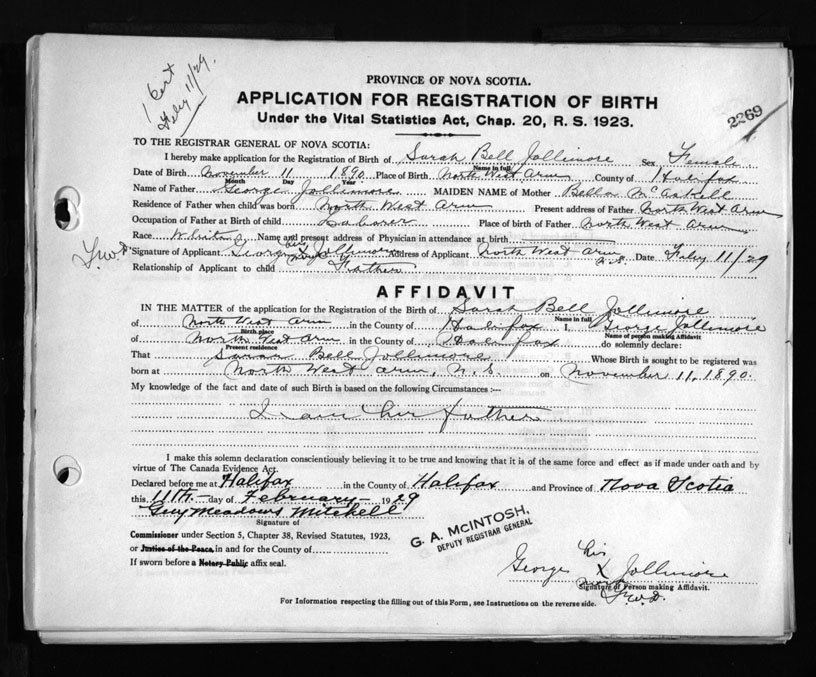 1 Cert
Feby 11/29
PROVINCE OF NOVA SCOTIA.
APPLICATION FOR REGISTRATION OF BIRTH
Under the Vital Statistics Act, Chap. 20, R. S. 1923.
2269
TO THE REGISTRAR GENERAL OF NOVA SCOTIA:
I hereby make application for the Registration of Birth of Sarah Bell Jollimore Sex Female
Name in full
Date of Birth November 11 1890 Place of Birth North West Arm County of Halifax
Month Day Year
Name of Father George Jollimore MAIDEN NAME of Mother Bella McCaskell
Residence of Father when child was born North West Arm Present address of Father North West Arm
Occupation of Father at Birth of child Laborer Place of birth of Father North West Arm
Race White Name and present address of Physician in attendance at birth
F.W.D. Signature of Applicant George his X mark Jollimore Address of Applicant North West Arm N.S. Date Feby 11/29
Relationship of Applicant to child Father
AFFIDAVIT
IN THE MATTER of the application for the Registration of the Birth of Sarah Bell Jollimore
Name in full
of North West Arm in the County of Halifax I, George Jollimore
Birth place Name of person making Affidavit
of North West Arm in the County of Halifax do solemnly declare:
Present residence
That Sarah Bell Jollimore Whose Birth is sought to be registered was
born at North West Arm, N.S. on November 11, 1890.
My knowledge of the fact and date of such Birth is based on the following Circumstances :—
I am her father
I make this solemn declaration conscientiously believing it to be true and knowing that it is of the same force and effect as if made under oath and by
virtue of The Canada Evidence Act.
Declared before me at Halifax in the County of Halifax and Province of Nova Scotia
this 11th day of February 1929
Guy Meadows Mitchell
Signature of
Commissioner under Section 5, Chapter 38, Revised Statutes, 1923,
or Justice of the Peace, in and for the County of
If sworn before a Notary Public affix seal.
G. A. McINTOSH,
DEPUTY REGISTRAR GENERAL
his
George X Jollimore
mark
Signature of Person making Affidavit.
F.W.D.
For Information respecting the filling out of this Form, see Instructions on the reverse side.